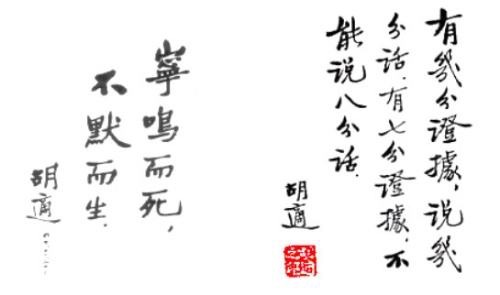 有幾分證據,说幾
分话.有七分證據,不
能说八分话.
胡適
寧鳴而死,
不默而生.
胡適